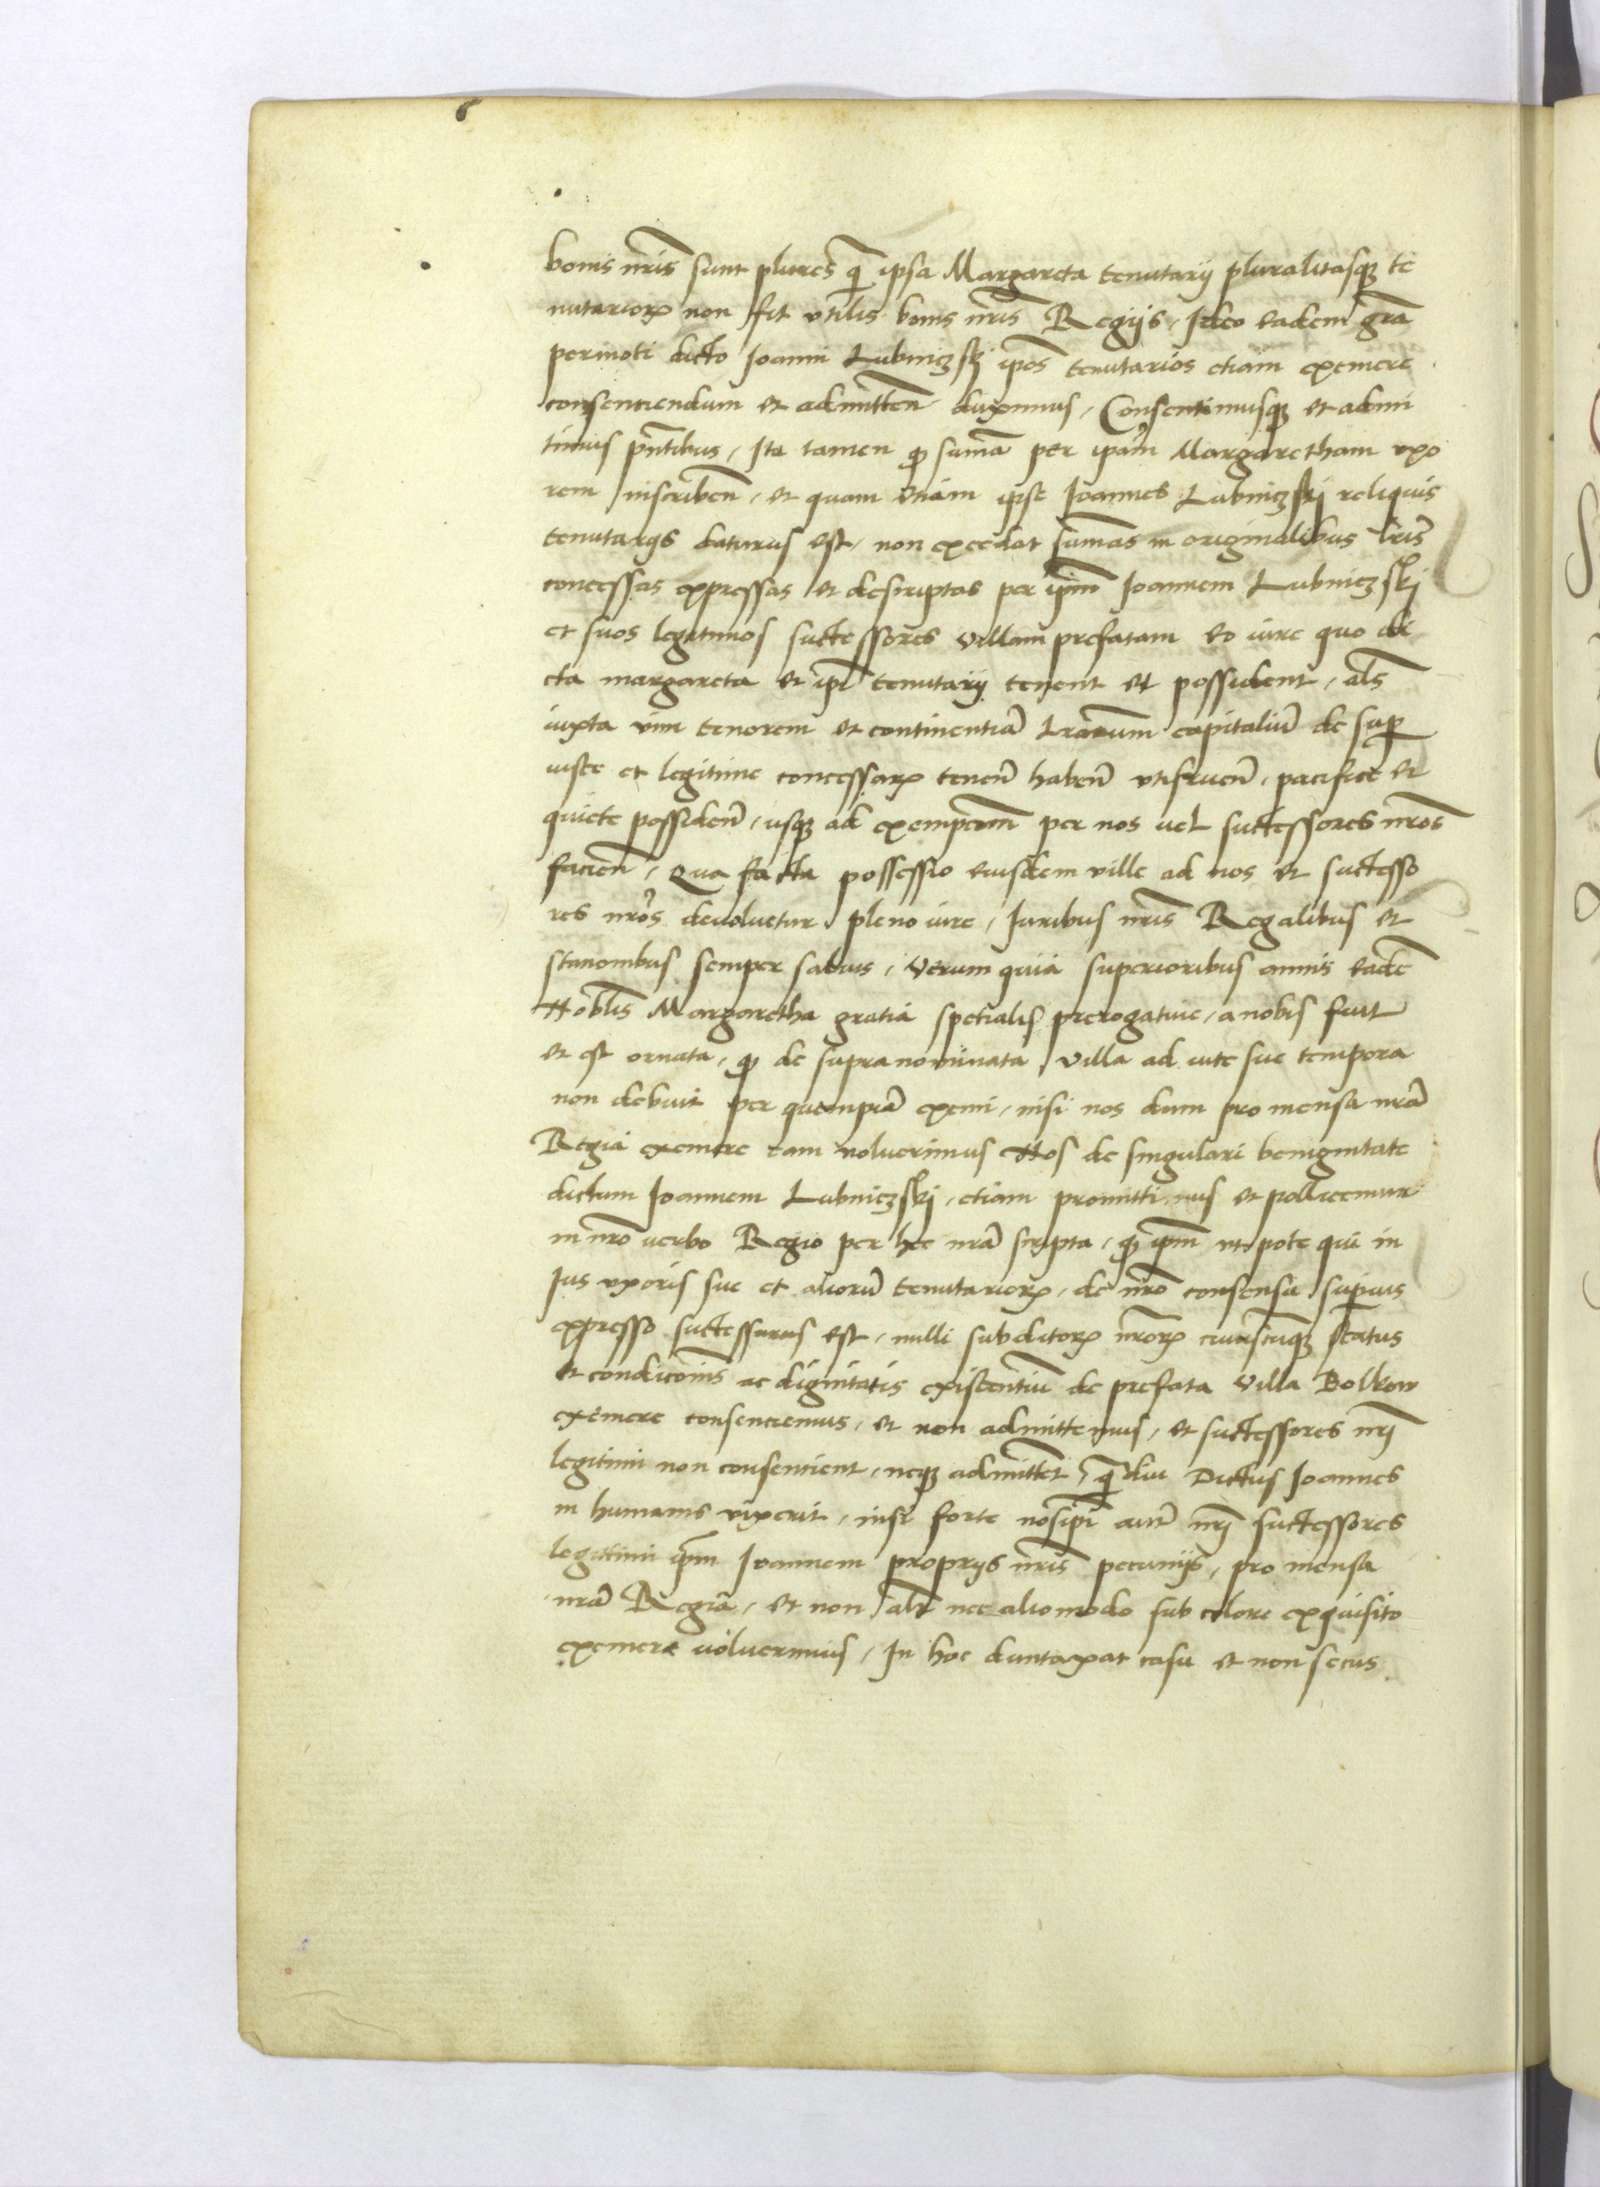 bonis nris sunt plures q̃ ipsa Margareta tenutarij pluralitasq̃ te
nutarioꝝ non fit vtilis bonis nris Regijs, Ideo eadem grã
permoti dicto Ioanni Lubniczskj ipos tenutarios etiam eximere
consenciendum et admitten̄ duximus, Consentimusq̃ et admi
timus pñtibus, Ita tamen ꝙ sumã per ipam Margaretham vxo
rem inscriben̄, et quam etiam ipse Ioannes Lubniczskj reliquis
tenutarijs daturus est, non excedat sumas in originalibus lris
concessas expressas et descriptas per ipm Ioannem Lubniczskj
et suos legitimos successores villam prefatam eo iure quo di
cta margareta et ipi tenutarij tenent et possident, als
iuxta vim tenorem et continentiã lrarum capitaliũ de sup
iuste et legitime concessaꝝ tenen̄ haben̄ vtifruen̄, pacifice et
quiete possiden̄, usq̃ ad exempcom̄ per nos uel successores nros
facien̄, Qua facta possessio eiusdem ville ad nos et successo
res nros deuoluetur pleno iure, Iuribus nris Regalibus et
stanonibus semper saluis, Verum quia superioribus annis eadẽ
Noblis Margaretha gratia spetialis prerogatiue, a nobis fuit
et est ornata, ꝙ de supra nominata villa ad uite sue tempora
non debuit per quempiã eximi, nisi nos dum pro mensa nrã
Regia eximere eam voluerimus Nos de singulari benignitate
dictum Ioannem Lubniczskj, etiam promittimus et pollicemur
in nro verbo Regio per hec nrã scripta, ꝙ ipm utpote qui in
Ius vxoris sue et aliorũ tenutarioꝝ, de nro consensu supius
expresso successurus est, nulli subditoꝝ nroꝝ cuiuscũq̃ status
et condicois ac dignitatis existentiũ de prefata villa Bolkow
eximere consenciemus, et non admittemus, et successores nrj
legitimi non consentient, neq̃ admittet, q̃ diu Dictus Ioannes
in humanis vixerit, nisi forte nosipi aut nrj successores
legitimi ipm Ioannem proprijs nris pecunijs, pro mensa
nrã Regiã, et non alr nec aliomodo sub colore exquisito
eximere voluerimus, In hoc duntaxat casu et non secus